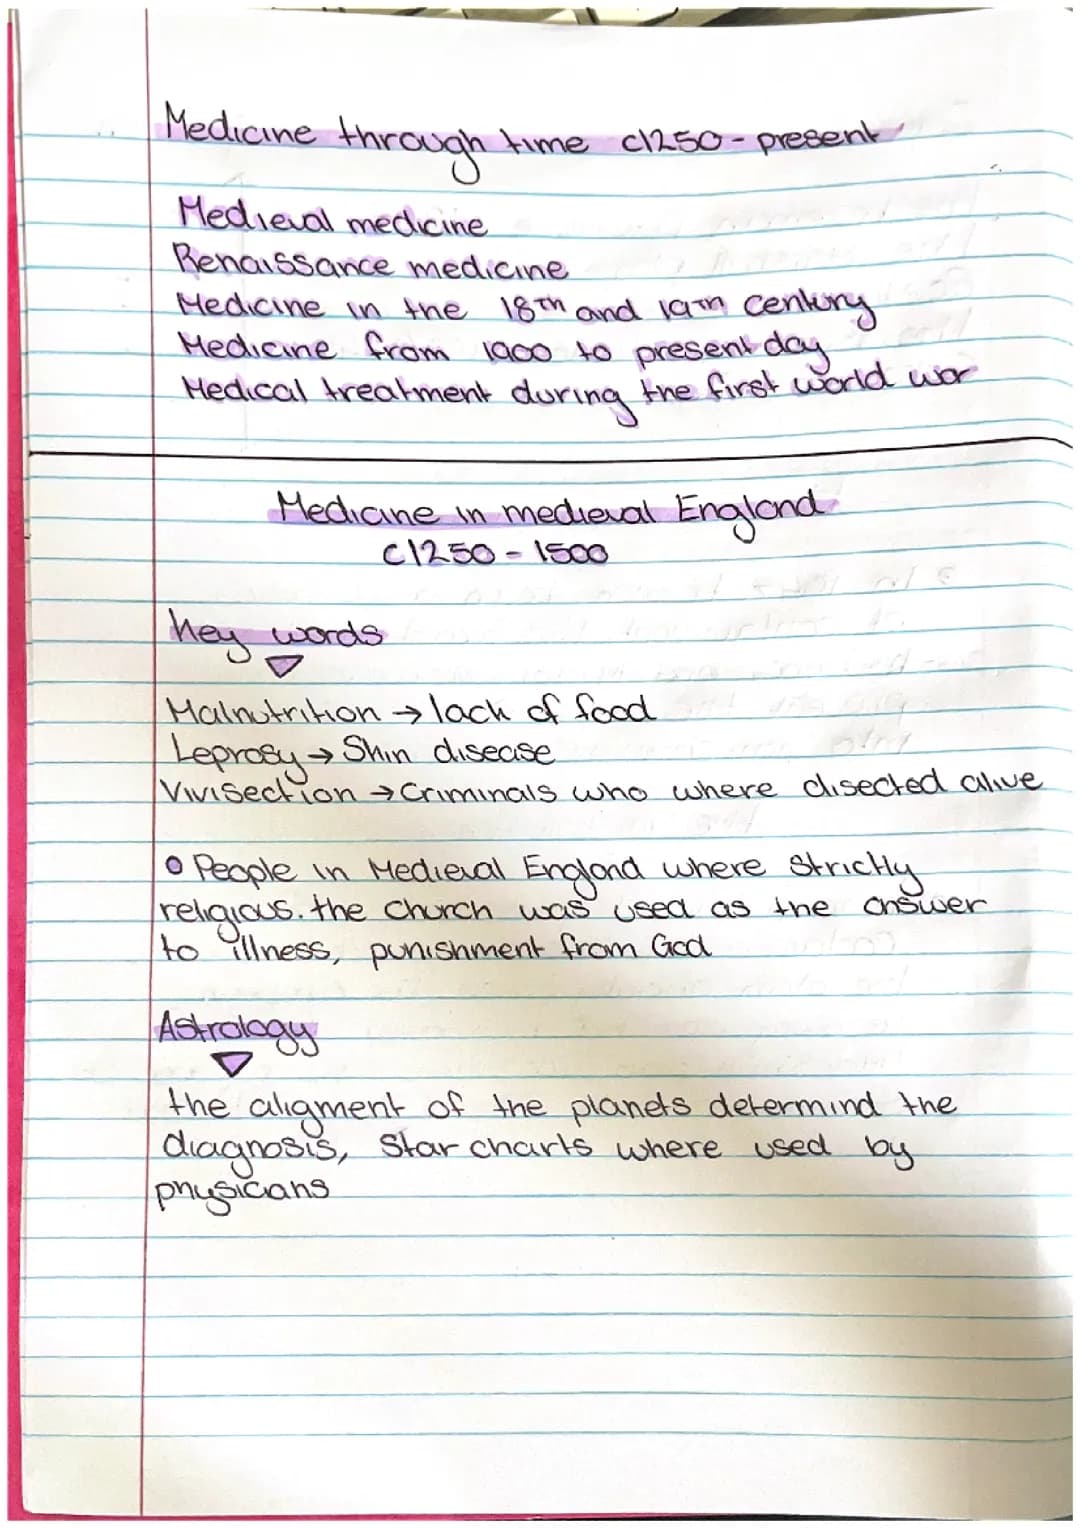 Medicine through time c1250 - present
Medieval medicine
Renaissance medicine
Medicine in the 18th and 19th century
Medicine from 1900 to present day
Medical treatment during the first world war
Medicine in medieval England
C1250 - 1500
key words
Malnutrition → lack of food
Leprosy → Skin disease
Vivisection → Criminals who where disected alive
• People in Medieval England where strictly
religious. the church was used as the answer
to illness, punishment from God
Astrology
the aligment of the planets determind the
diagnosis, Star charts where used by
physicians